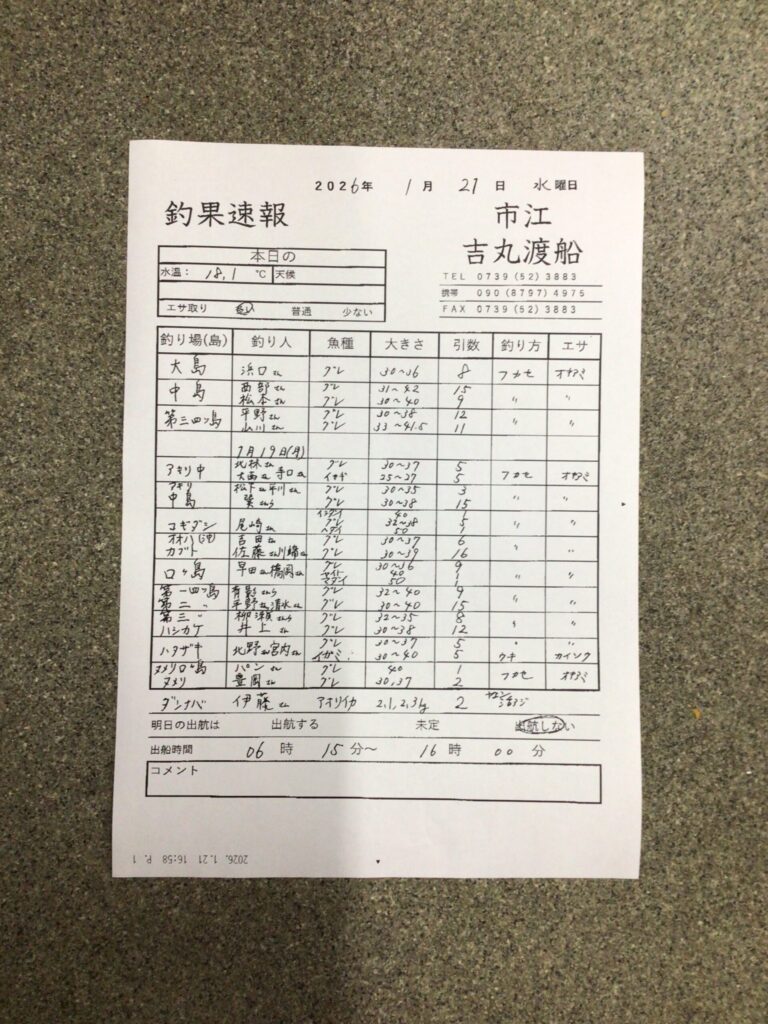 2026年 1月 21日 水曜日
釣果速報
市江
吉丸渡船
本日の
水温： 18.1 ℃ 天候
エサ取り 多い 普通 少ない
TEL 0739(52)3883
携帯 090(8797)4975
FAX 0739(52)3883
釣り場(島) 釣り人 魚種 大きさ 引数 釣り方 エサ
大島 浜口さん グレ 30〜36 8 フカセ オキアミ
中島 西部さん グレ 31〜42 15 〃 〃
松本さん グレ 30〜40 9
第三四ツ島 平野さん グレ 30〜38 12 〃 〃
山川さん グレ 33〜41.5 11
1月19日(月)
アキリ中 北林さん グレ 30〜37 5 フカセ オキアミ
大西さん 寺口さん イサギ 25〜27 5
アキリ 松下さん 平川さん グレ 30〜35 3 〃 〃
中島 巽さんら グレ 30〜38 15
イシダイ 40 1
コギダシ 尾崎さん グレ 32〜38 5 〃 〃
50 1
吉田さん グレ 30〜37 6
カブト 佐藤さん 川崎さん グレ 30〜39 16 〃 〃
グレ 30〜36 9
口ヶ島 早田さん 橋岡さん 40 1 〃 〃
マダイ 50 1
第一四ツ島 さんら グレ 32〜40 9
第二 〃 平野さん 清水さん グレ 30〜40 15 〃 〃
第三 〃 柳瀬さんら グレ 32〜35 8
ハシカケ 井上さん グレ 30〜38 12 〃 〃
グレ 30〜37 5 〃 〃
ハタザキ 北野さん 宮内さん イガミ 30〜40 5 ウキ カイソク
ヌメリロ島 パンさん グレ 40 1
ヌメリ 豊岡さん グレ 30,37 2 フカセ オキアミ
ダシナバ 伊藤さん アオリイカ 2.1, 2.3kg 2 ヤエン 活アジ
明日の出航は 出航する 未定 出航しない
出船時間 06時 15分〜 16時 00分
コメント
2026. 1.21 16:58 P. 1